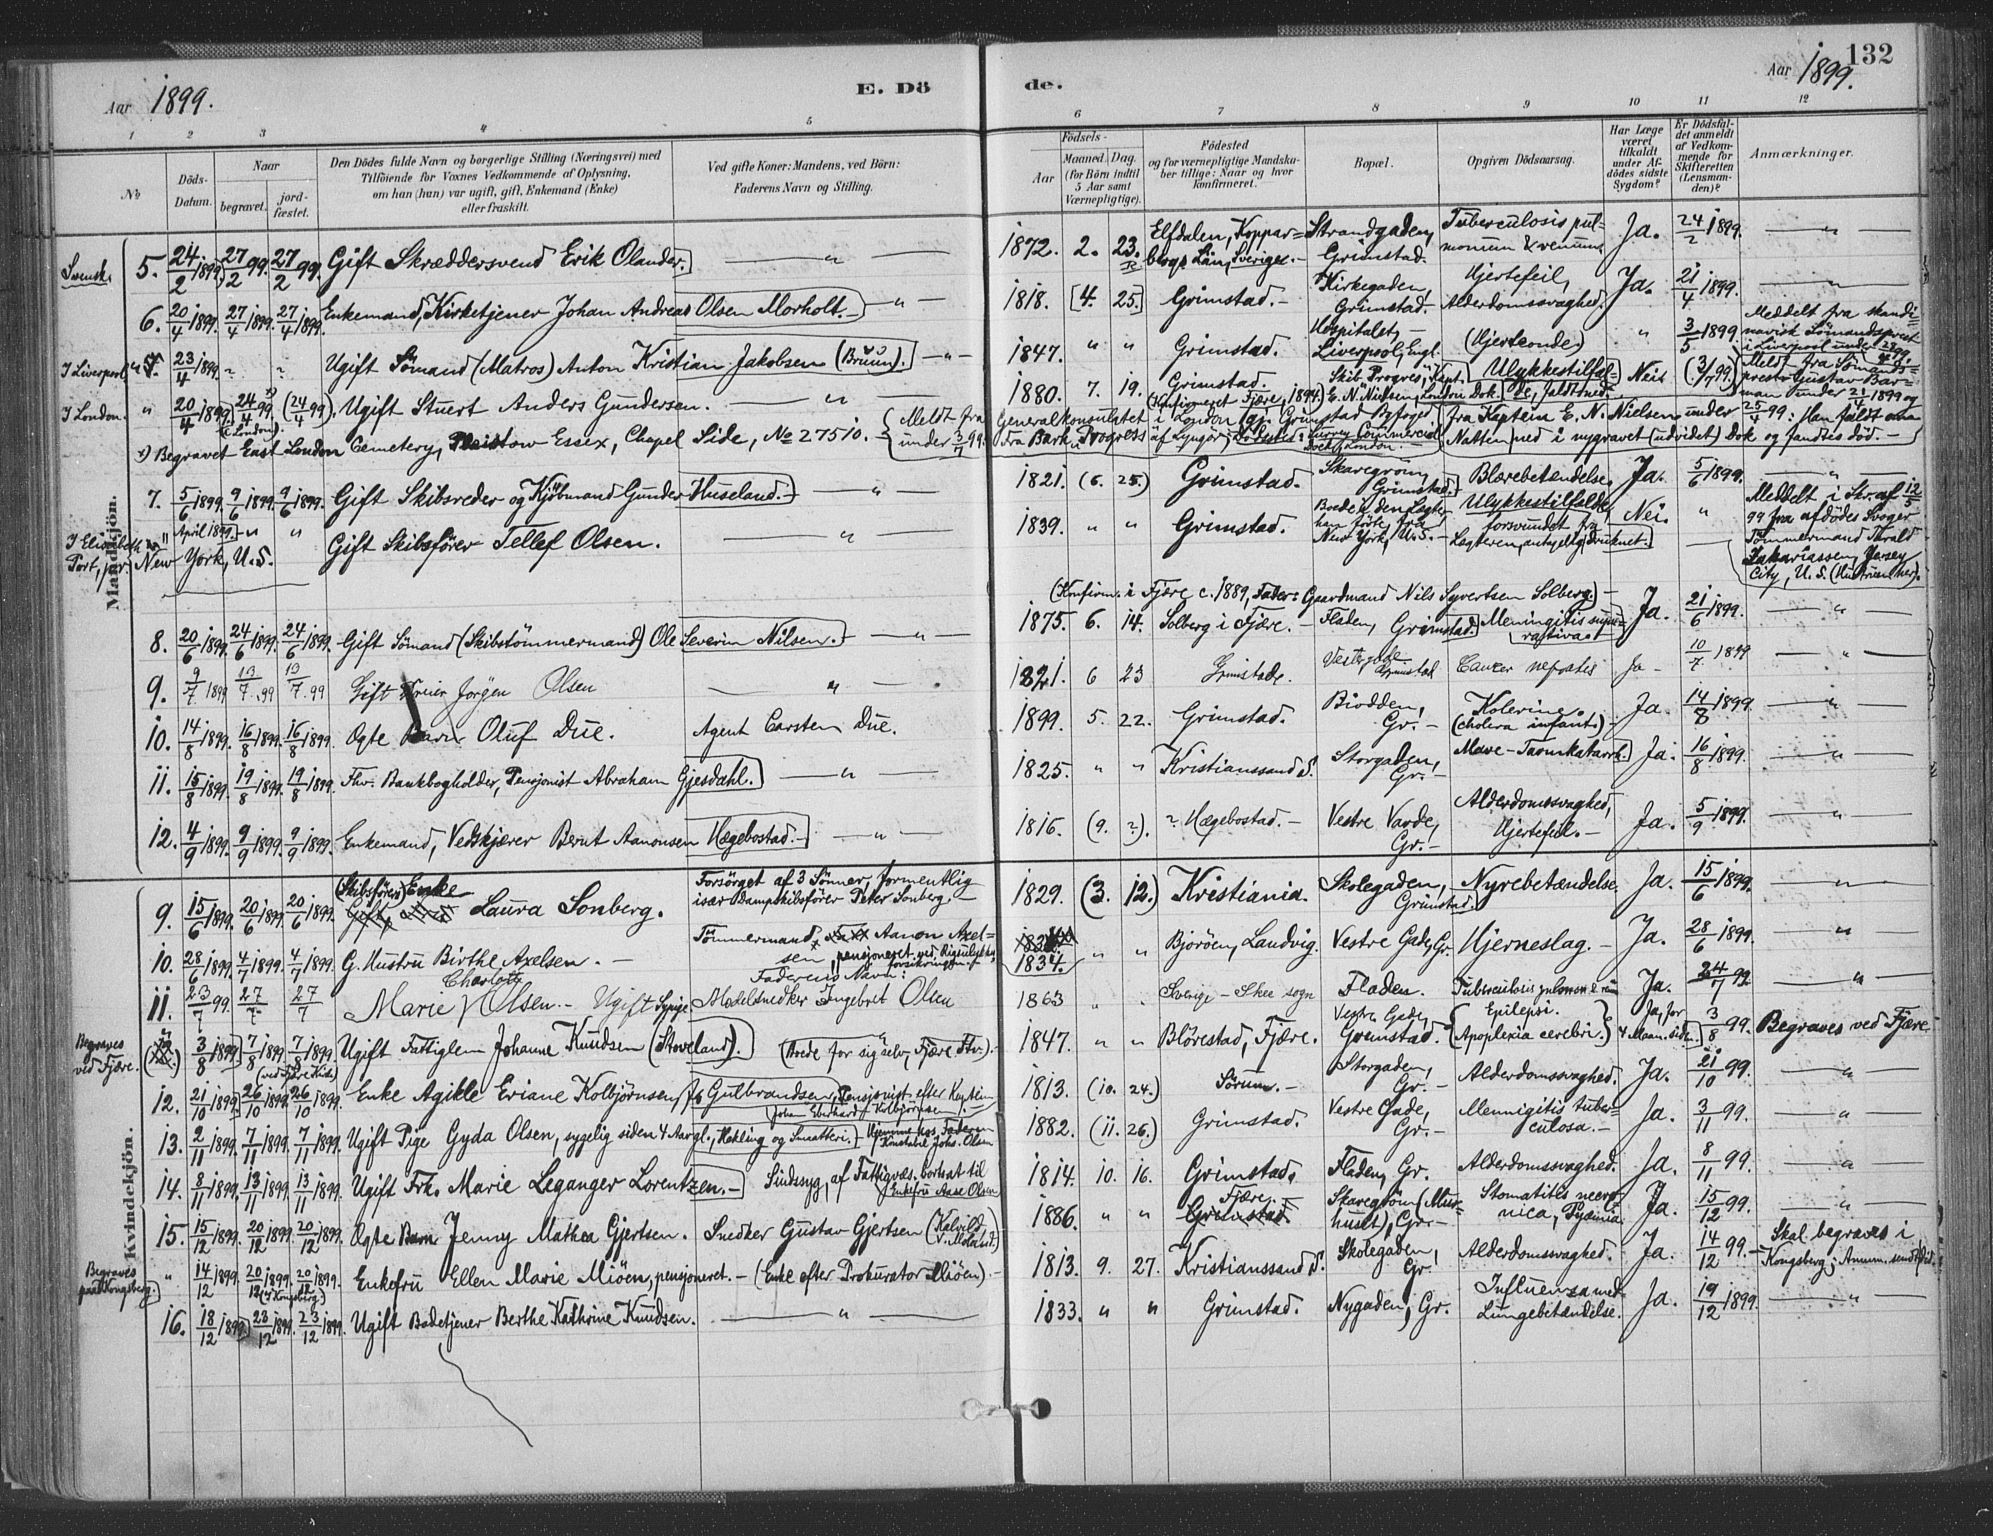 132
Aar 1899. E. Dö de. Aar 1899.
1 2 3 4 5 6 7 8 9 10 11 12
No
Döds-Datum.
Naar
begravet.
jord-fæstet.
Den Dödes fulde Navn og borgerlige Stilling (Næringsvei) med
Tilföiende for Voxnes Vedkommende af Oplysning,
om han (hun) var ugift, gift, Enkemand (Enke)
eller fraskilt.
Ved gifte Koner: Mandens, ved Börn:
Faderens Navn og Stilling.
Födsels-
Aar
Maaned. Dag.
(for Börn indtil
5 Aar samt
Værnepligtige).
Födested
og for værnepligtige Mandska-
ber tillige: Naar og hvor
konfirmeret.
Bopæl.
Opgiven Dödsaarsag.
Har Læge
været
tilkaldt
under Af-
dödes sidste
Sygdom?
Er Dödsfal-
det anmeldt
af Vedkom-
mende for
Skifteretten
(Lensman-
den)?
Anmærkninger.
Mandkjön.
Svensk. 5. 24/2 1899. 27/2 99. 27/2 99. Gift Skræddersvend Erik Olander. — " — 1872. 2. 23. Elfdalen, Koppar=
bergs Län, Sverige. — Strandgaden, Grimstad. Tuberculosis pul-
monum & renum. Ja. 24/2 1899. — " —
6. 20/4 1899. 27/4 1899. 27/4 1899. Enkemand, Kirketjener Johan Andreas Olsen Morholt. — " — 1818. [4. 25.] Grimstad. — Kirkegaden, Grimstad. Hjertefeil, Alderdomssvaghed. Ja. 21/4 1899. — " —
I Liverpool " 23/4 1899. ? ? Ugift Sömand (Matros) Anton Kristian Jakobsen (Bruun). — " — 1847. " " Grimstad. Hospitalet, Liverpool, Engl. (Hjerteonde.) " 3/5 1899. Meddelt fra skandi=
navisk Sömandsprest
i Liverpool under 25/4 99.
I London. " 20/4 1899. 24/4 99. (i London). (24/4 99). Ugift Stuert Anders Gundersen. — " — 1880. 7. 19. Grimstad.
(Konfirmeret Fjære, 1894). Skib "Progres", Kapt.
E. N. Nielsen, London Dok. Ulykkestilfæl-
de, faldt ned. Nei. (3/7 99). Meldt fra Sömands-
prest Gustav Bar-
man under 21/4 1899 og
x) Begravet East London Cemetery, Plaistow Essex, Chapel Side, No 27510. — Meldt fra
under 3/7 99. Generalkonsulatet i London
fra Bark "Progress" af Lyngör, Surrey Commercial
Dock, London. fra Kaptein E. N. Nielsen under 25/4 99: Han faldt om
Natten ned i nygravet (udvidet) Dok og fandtes död. —
7. 5/6 1899. 9/6 1899. 9/6 1899. Gift Skibsreder og Kjöbmand Gunder Huseland. — " — 1821. (6. 25.) Grimstad. Skaregröm, Grimstad. Blærebetændelse. Ja. 5/6 1899. "
I Elisabeth
Port, New York, U. S. " April 1899. " " Gift Skibsförer Tellef Olsen. — " — 1839. " " Grimstad. New York, U. S. — Ulykkestilfælde,
forsvundet fra
Lægteren, antagelig druknet. Nei. " Meddelt i Skr. af 12/5
99 fra afdödes Svoger
Tömmermand Thrald
Zakariassen, Jersey
City, U. S. (Hustruen her).
(Konfirm. i Fjære c. 1889, Fader: Gaardmand Nils Syvertsen Solberg.) —
8. 20/6 1899. 24/6 1899. 24/6 1899. Gift Sömand (Skibstömmermand) Ole Severin Nilsen. — " — 1875. 6. 14. Solberg i Fjære. — Fladen, Grimstad. Meningitis Ja. 21/6 1899. — " —
9. 9/7 1899 13/7 99 13/7 99 Gift Jörgen Olsen — " — 1821. 6 23 Grimstad. Vestregade Grimstad Cancer Ja — 10/7 1899 — " —
10. 14/8 1899. 16/8 1899. 16/8 1899. Ægte Barn Oluf Due. Agent Carsten Due. 1899. 5. 22. Grimstad. Biodden, Gr. — Kolerine.
(cholera infant.) — Ja. 14/8 1899. — " —
11. 15/8 1899. 19/8 1899. 19/8 1899. Fhv. Bankbogholder, Pensjonist Abraham Gjesdahl. — " — 1825. " " Kristianssand S. Storgaden, Gr. — Mave-Tarmkatarrh. Ja. 16/8 1899. — " —
12. 4/9 1899. 9/9 1899. 9/9 1899. Enkemand, Vedskjærer Bernt Aanonsen Hægebostad. — — " — 1816. (9. ?). ? Hægebostad. — Vestre Varde, Gr. — Alderdomssvaghed, Hjertefeil. — Ja. 5/9 1899. — " —
Kvindekjön.
9. 15/6 1899. 20/6 1899. 20/6 1899. (Skibsförer) Enke Laura Sonberg. Forsörget af 3 Sönner, formentlig
især Dampskibsförer Peter Sonberg. — 1829. (3. 12.) Kristiania. Skolegaden, Grimstad. Nyrebetændelse. Ja. 15/6 1899. — " —
10. 28/6 1899. 4/7 1899. 4/7 1899. G. Hustru Birthe Axelsen. — Tömmermand Aanon Axel=
sen, pensjoneret ved Rigsulykkes-
forsikringen. 1834. " " Bjoröen, Landvig. Vestre Gade, Gr. Hjerneslag. — Ja. 28/6 1899. "
11. 23/7 99. 27/7 27/7 Marie Charlotte Olsen. — Ugift Syerske Faderens Navn:
Modelsnedker Ingebret Olsen 1863 " " Sverige — Skee sogn Fladen. Tuberculosis pulmon. & ren Ja. 24/7 99. "
Begraves
ved Fjære. " 3/8 1899. 7/8 1899. 7/8 1899. (ved Fjære Kirke) Ugift Fattiglem Johanne Knudsen (Stoveland). (Boede for sig selv, Fjære Ftv.). — 1847. " " Blörestad, Fjære. Vestre Gade, Grimstad. Epilepsi.
(Apoplexia cerebri.) Ja, for
4 Maan. siden. 3/8 99. Begraves ved Fjære.
12. 21/10 1899. 26/10 1899. 26/10 1899. Enke Agikle Eriane Kolbjörnsen, f. Gulbrandsen, Pensjonist efter Kaptein
Johan Eberhard Kolbjörnsen. — 1813. (10. 24.) Sörum. — Storgaden, Gr. — Alderdomssvaghed. Ja. 21/10 99. — " —
13. 2/11 1899. 7/11 1899. 7/11 1899. Ugift Pige Gyda Olsen, sygelig siden 4 Aar gl., Hekling og Smaatteri. — Hjemme hos Faderen
Konstabel Johs. Olsen 1882. (11. 26.) Grimstad. Vestre Gade, Gr. — Menningitis tuber-
culosa. — Ja. 3/11 99. — " —
14. 8/11 1899. 13/11 1899. 13/11 1899. Ugift Frk. Marie Leganger Lorentzen. — Sindssyg, af Fattigvæs. bortsat til
Enkefru Aase Olsen 1814. 10. 16. Grimstad. Fladen, Gr. Alderdomssvaghed. Ja. 8/11 99. "
15. 15/12 1899. 20/12 1899. 20/12 1899. Ægte Barn Jenny Mathea Gjertsen. Snedker Gustav Gjertsen (Kalvild,
V. Moland). 1886. " " Fjære. Grimstad. Skaregröm (Mur-
huset), Gr. — Stomatitis necro-
nica, Pyæmia. Ja. 15/12 99. — " —
Begraves
paa Kongsberg. " 14/12 1899. 20/12 1899. (i Kongsberg) 20/12 1899. Enkefru Ellen Marie Miöen, pensjoneret. — (Enke efter Prokurator Miöen). — 1813. 9. 27. Kristianssand S. Skolegaden, Gr. Alderdomssvaghed. Ja. 14/12 99. — Skal begraves i
Kongsberg; Anm. sendt did.
16. 18/12 1899. 23/12 1899. 23/12 1899. Ugift Badetjener Berthe Kathrine Knudsen. — " — 1833. " " Grimstad. Nygaden, Gr. Influensa med
Lungebetændelse. Ja. 19/12 1899. — " —